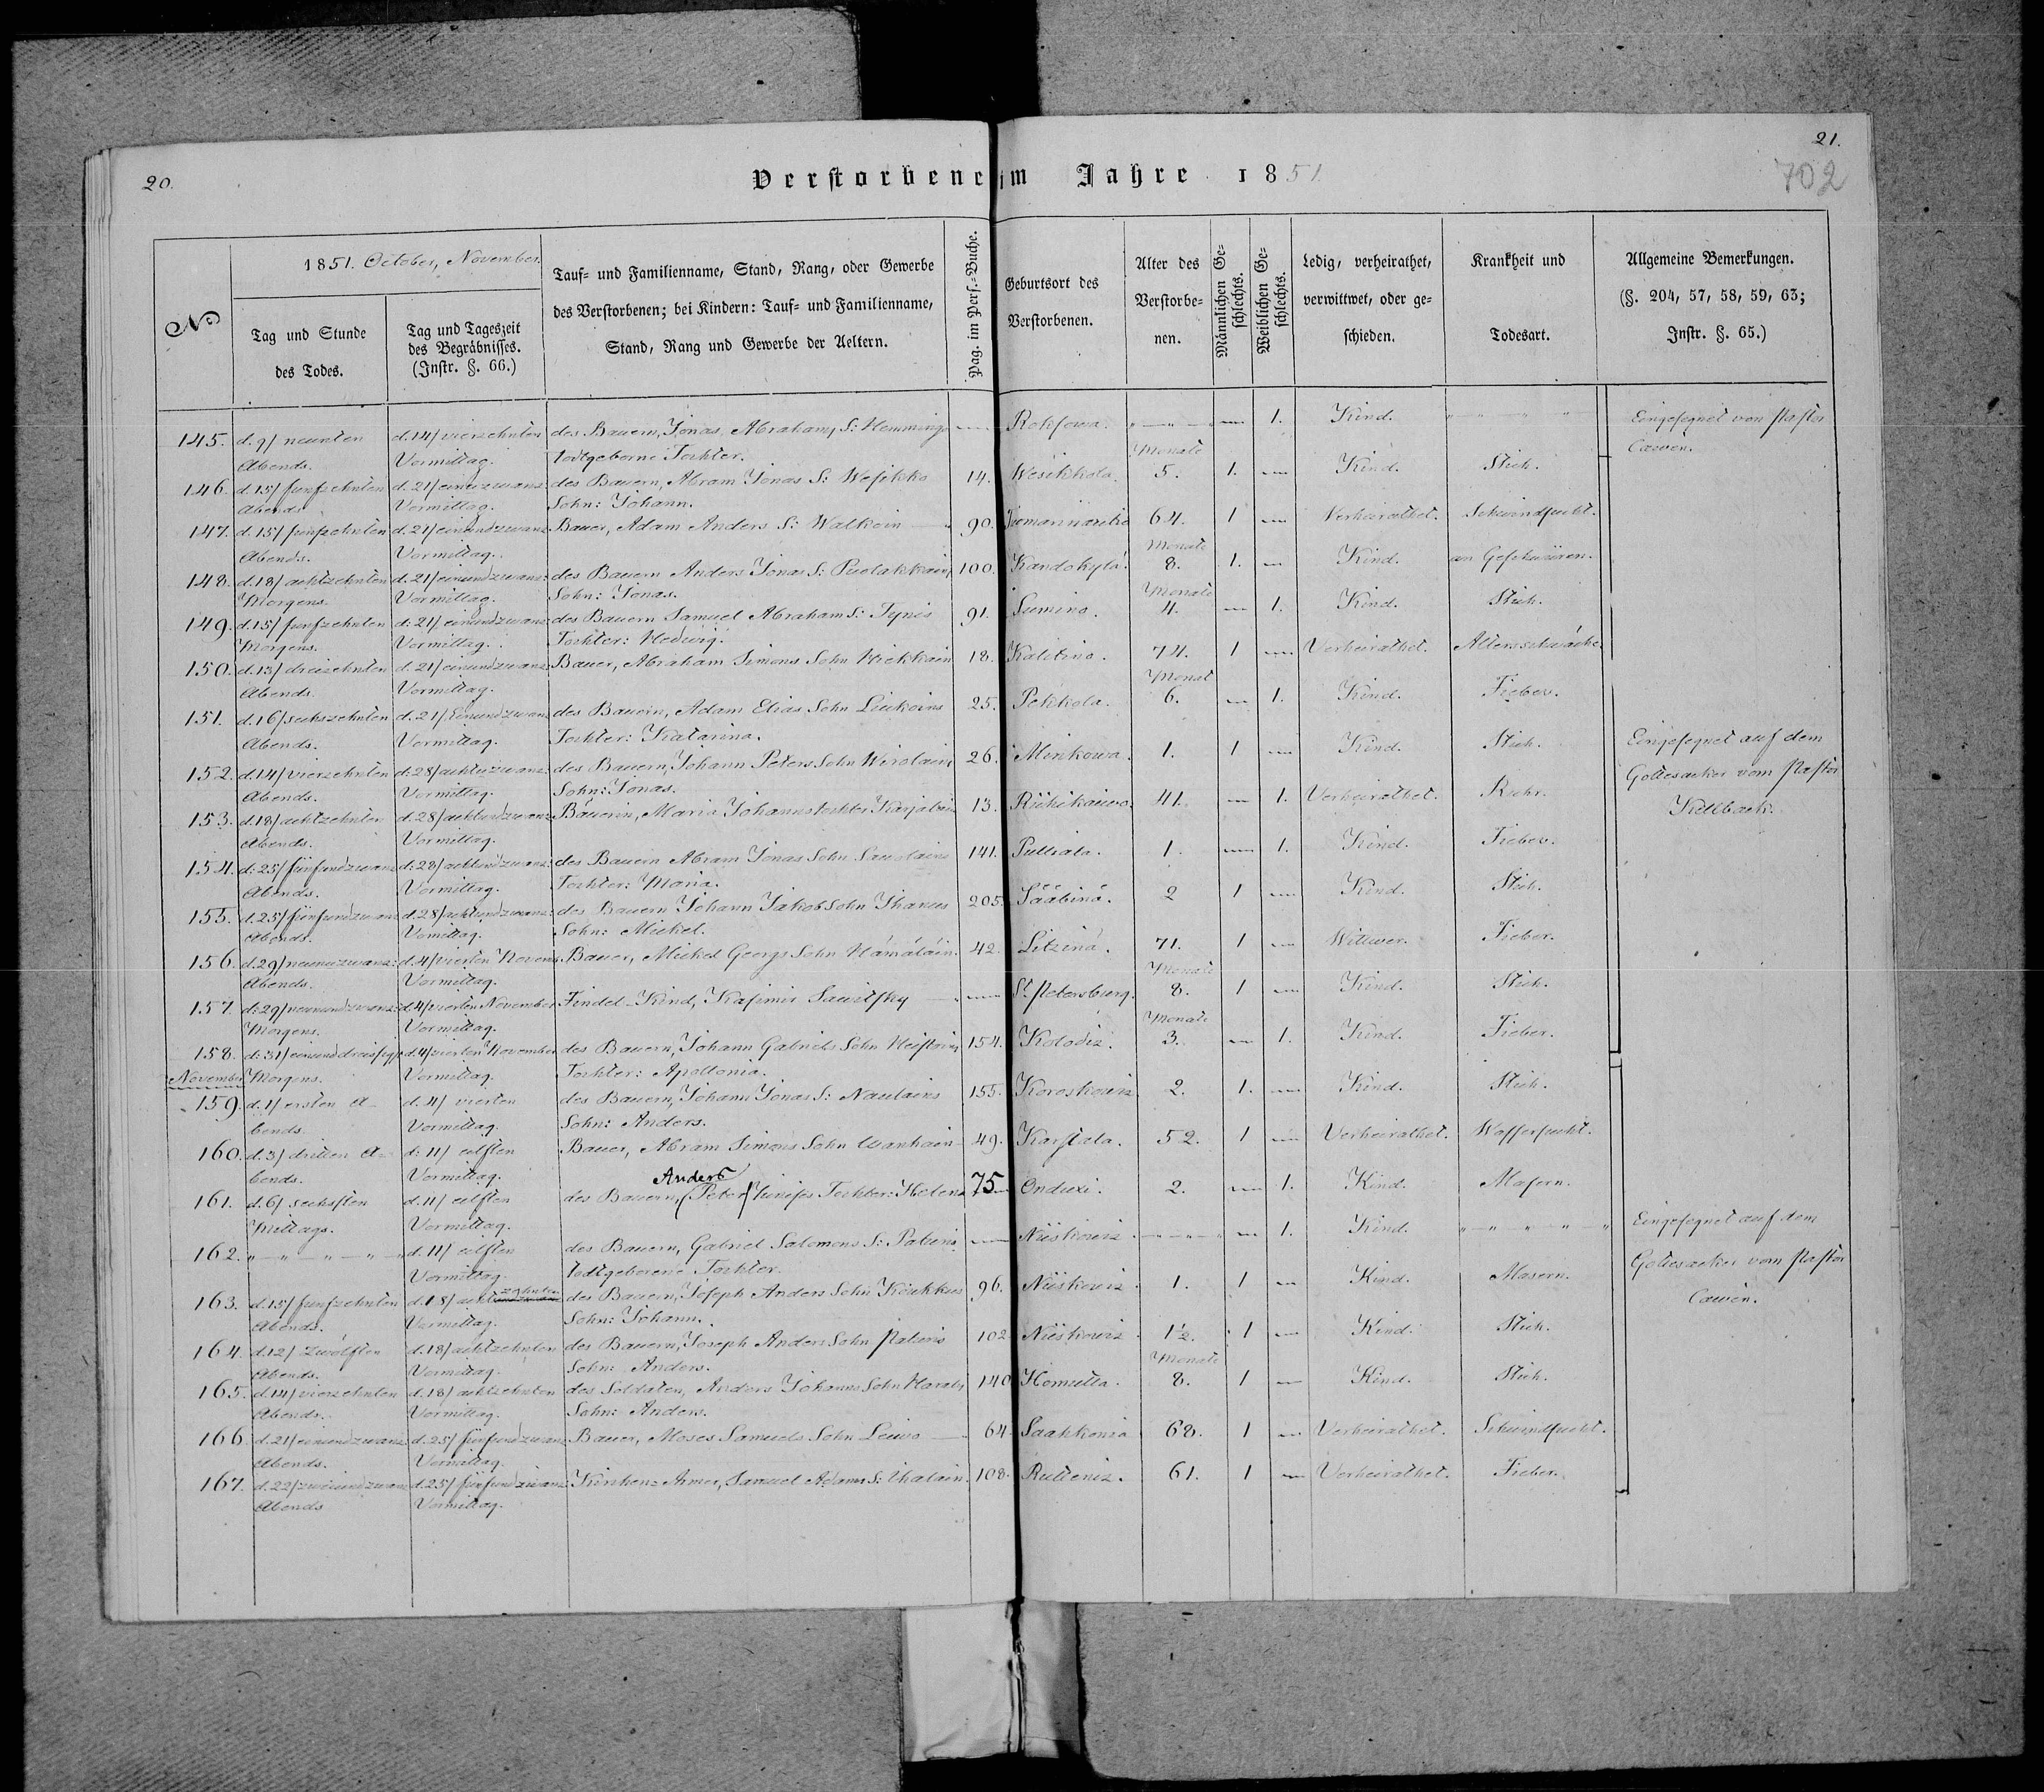 20.
21.
702
Verstorbene im Jahre 1851
№
1851. October, November.
Tag und Stunde
des Todes.
Tag und Tageszeit
des Begräbnisses.
(Instr. §. 66.)
Tauf- und Familienname, Stand, Rang, oder Gewerbe
des Verstorbenen; bei Kindern: Tauf- und Familienname,
Stand, Rang und Gewerbe der Aeltern.
Pag. im Pers.-Buche.
Geburtsort des
Verstorbenen.
Alter des
Verstorbe-
nen.
Männlichen Ge-
schlechts.
Weiblichen Ge-
schlechts.
Ledig, verheirathet,
verwittwet, oder ge-
schieden.
Krankheit und
Todesart.
Allgemeine Bemerkungen.
(§. 204, 57, 58, 59, 63;
Instr. §. 65.)
145. d. 9/ neunten d. 14/ vierzehnten des Bauern, Jonas Abrahams S: Hemmings Rokosowa. 1. Kind. Eingesegnet von Pastor
Abends. Vormittag. todtgeborne Tochter. Monate Cawén.
146. d. 15/ funfzehnten d. 21/ einuzwanz: des Bauern, Abram Jonas S: Wesikko 14. Wesikkola. 5. 1. Kind. Stich.
Abends Vormittag. Sohn: Johann.
147. d. 15/ funfzehnten d. 21/ einundzwanz Bauer, Adam Anders S: Walkoin 90. 64. 1 Verheirathet. Schwindsucht.
Abends. Vormittag. Monate
148. d. 18/ achtzehnten d. 21/ einundzwanz: des Bauern Anders Jonas S: Puolakkains 100. Kandokylä. 8. 1. Kind. an Geschwüren.
Morgens. Vormittag. Sohn: Jonas. Monate
149. d. 15/ funfzehnten d: 21/ einundzwanz: des Bauern Samuel Abraham S: Tynis 91. Sumino. 4. 1. Kind. Stich.
Morgens. Vormittag. Tochter: Hedwig.
150. d. 13/ dreizehnten d. 21/ einundzwanz: Bauer, Abraham Simons Sohn Kiekkain 18. Kalitino. 74. 1 Verheirathet. Altersschwäche
Abends. Vormittag. Monat
151. d. 16/ sechszehnten d. 21/ Einundzwanz des Bauern, Adam Elias Sohn Liukoins 25. Pekkola. 6. 1. Kind. Fieber.
Abends. Vormittag. Tochter: Katarina.
152. d. 14/ vierzehnten d: 28/ achtuzwanz: des Bauern, Johann Peters Sohn Wirolains 26. Minkowa. 1. 1 Kind. Stich. Eingesegnet auf dem
Abends. Vormittag. Sohn: Jonas. Gottesacker vom Pastor
153. d. 18/ achtzehnten d. 28/ achtundzwanz Bäuerin, Maria Johanns tochter Karjalain 13. Riihikaiwo. 41. 1. Verheirathet. Ruhr. Kellback.
Abends. Vormittag.
154. d: 25/ fünfundzwanz d: 28/ achtundzwanz: des Bauern Abram Jonas Sohn Saustains 141. Pulliala. 1. 1. Kind. Fieber.
Abends. Vormittag. Tochter: Maria.
155. d. 25/ fünfundzwanz d. 28/ achtundzwanz: des Bauern Johann Jakob Sohn Ihanus 205. Sääbinä. 2 1 Kind. Stich.
Abends. Vormittag. Sohn: Mickel.
156. d. 29/ neunuzwanz: d. 4/ vierten Novem. Bauer, Mickel Georgs Sohn Hämäläin. 42. Litzinä. 71. 1 Wittwer. Fieber.
Abends. Vormittag. Monate
157. d: 29/ neunundzwanz: d. 4/ vierten November Findel-Kind, Kasimir Sawitsky St Petersburg. 8. 1 Kind. Stich.
Morgens. Vormittag. Monate
158. d: 31/ einunddreissigst d. 4/ vierten November des Bauern, Johann Gabriels Sohn Heistoins 154. Kolodiz. 3. 1. Kind. Fieber.
November. Morgens. Vormittag. Tochter: Apollonia.
159. d. 1/ ersten A- d. 4/ vierten des Bauern, Johann Jonas S: Naulains 155. Koroskowiz. 2. 1. Kind. Stich.
bends. Vormittag. Sohn: Anders.
160. d. 3/ dritten A- d: 11/ eilften Bauer, Abram Simons Sohn Wanhain 49. Karstala. 52. 1 Verheirathet. Wassersucht.
bends. Vormittag. Anders
161. d. 6/ sechsten d. 11/ eilften des Bauern, (Peter) Tochter: Helena 75 Onduxi. 2. 1. Kind. Masern.
Mittags. Vormittag.
162. d. 11/ eilften des Bauern, Gabriel Salomons S: Paturis Niiskowiz. 1. Kind. Eingesegnet auf dem
Vormittag. todtgeborene Tochter. Gottesacker vom Pastor
163. d. 15/ funfzehnten d. 18/ achtzehnten des Bauern, Joseph Anders Sohn Köukkus 96. Niiskowiz. 1. 1 Kind. Masern. Cawén.
Abends. Vormittag. Sohn: Johann.
164. d. 12/ zwölften d. 18/ achtzehnten des Bauern, Joseph Anders Sohn Paturis 102. Niiskowiz. 1½. 1 Kind. Stich.
Abends. Vormittag. Sohn: Anders. Monate
165. d. 14/ vierzehnten d. 18/ achtzehnten des Soldaten, Anders Johanns Sohn Harals 140 Homutta. 8. 1 Kind. Stich.
Abends. Vormittag. Sohn: Anders.
166. d. 21/ einundzwanz. d. 25/ fünfundzwanz Bauer, Moses Samuels Sohn Leiwo 64 Saahkonia 68. 1 Verheirathet. Schwindsucht.
Abends. Vormittag.
167. d. 22/ zweiundzwanz d. 25/ fünfundzwanz: Kirchen-Armer, Samuel Adams S: Ihalain. 108. Rutteniz. 61. 1 Verheirathet. Fieber.
Abends Vormittag.